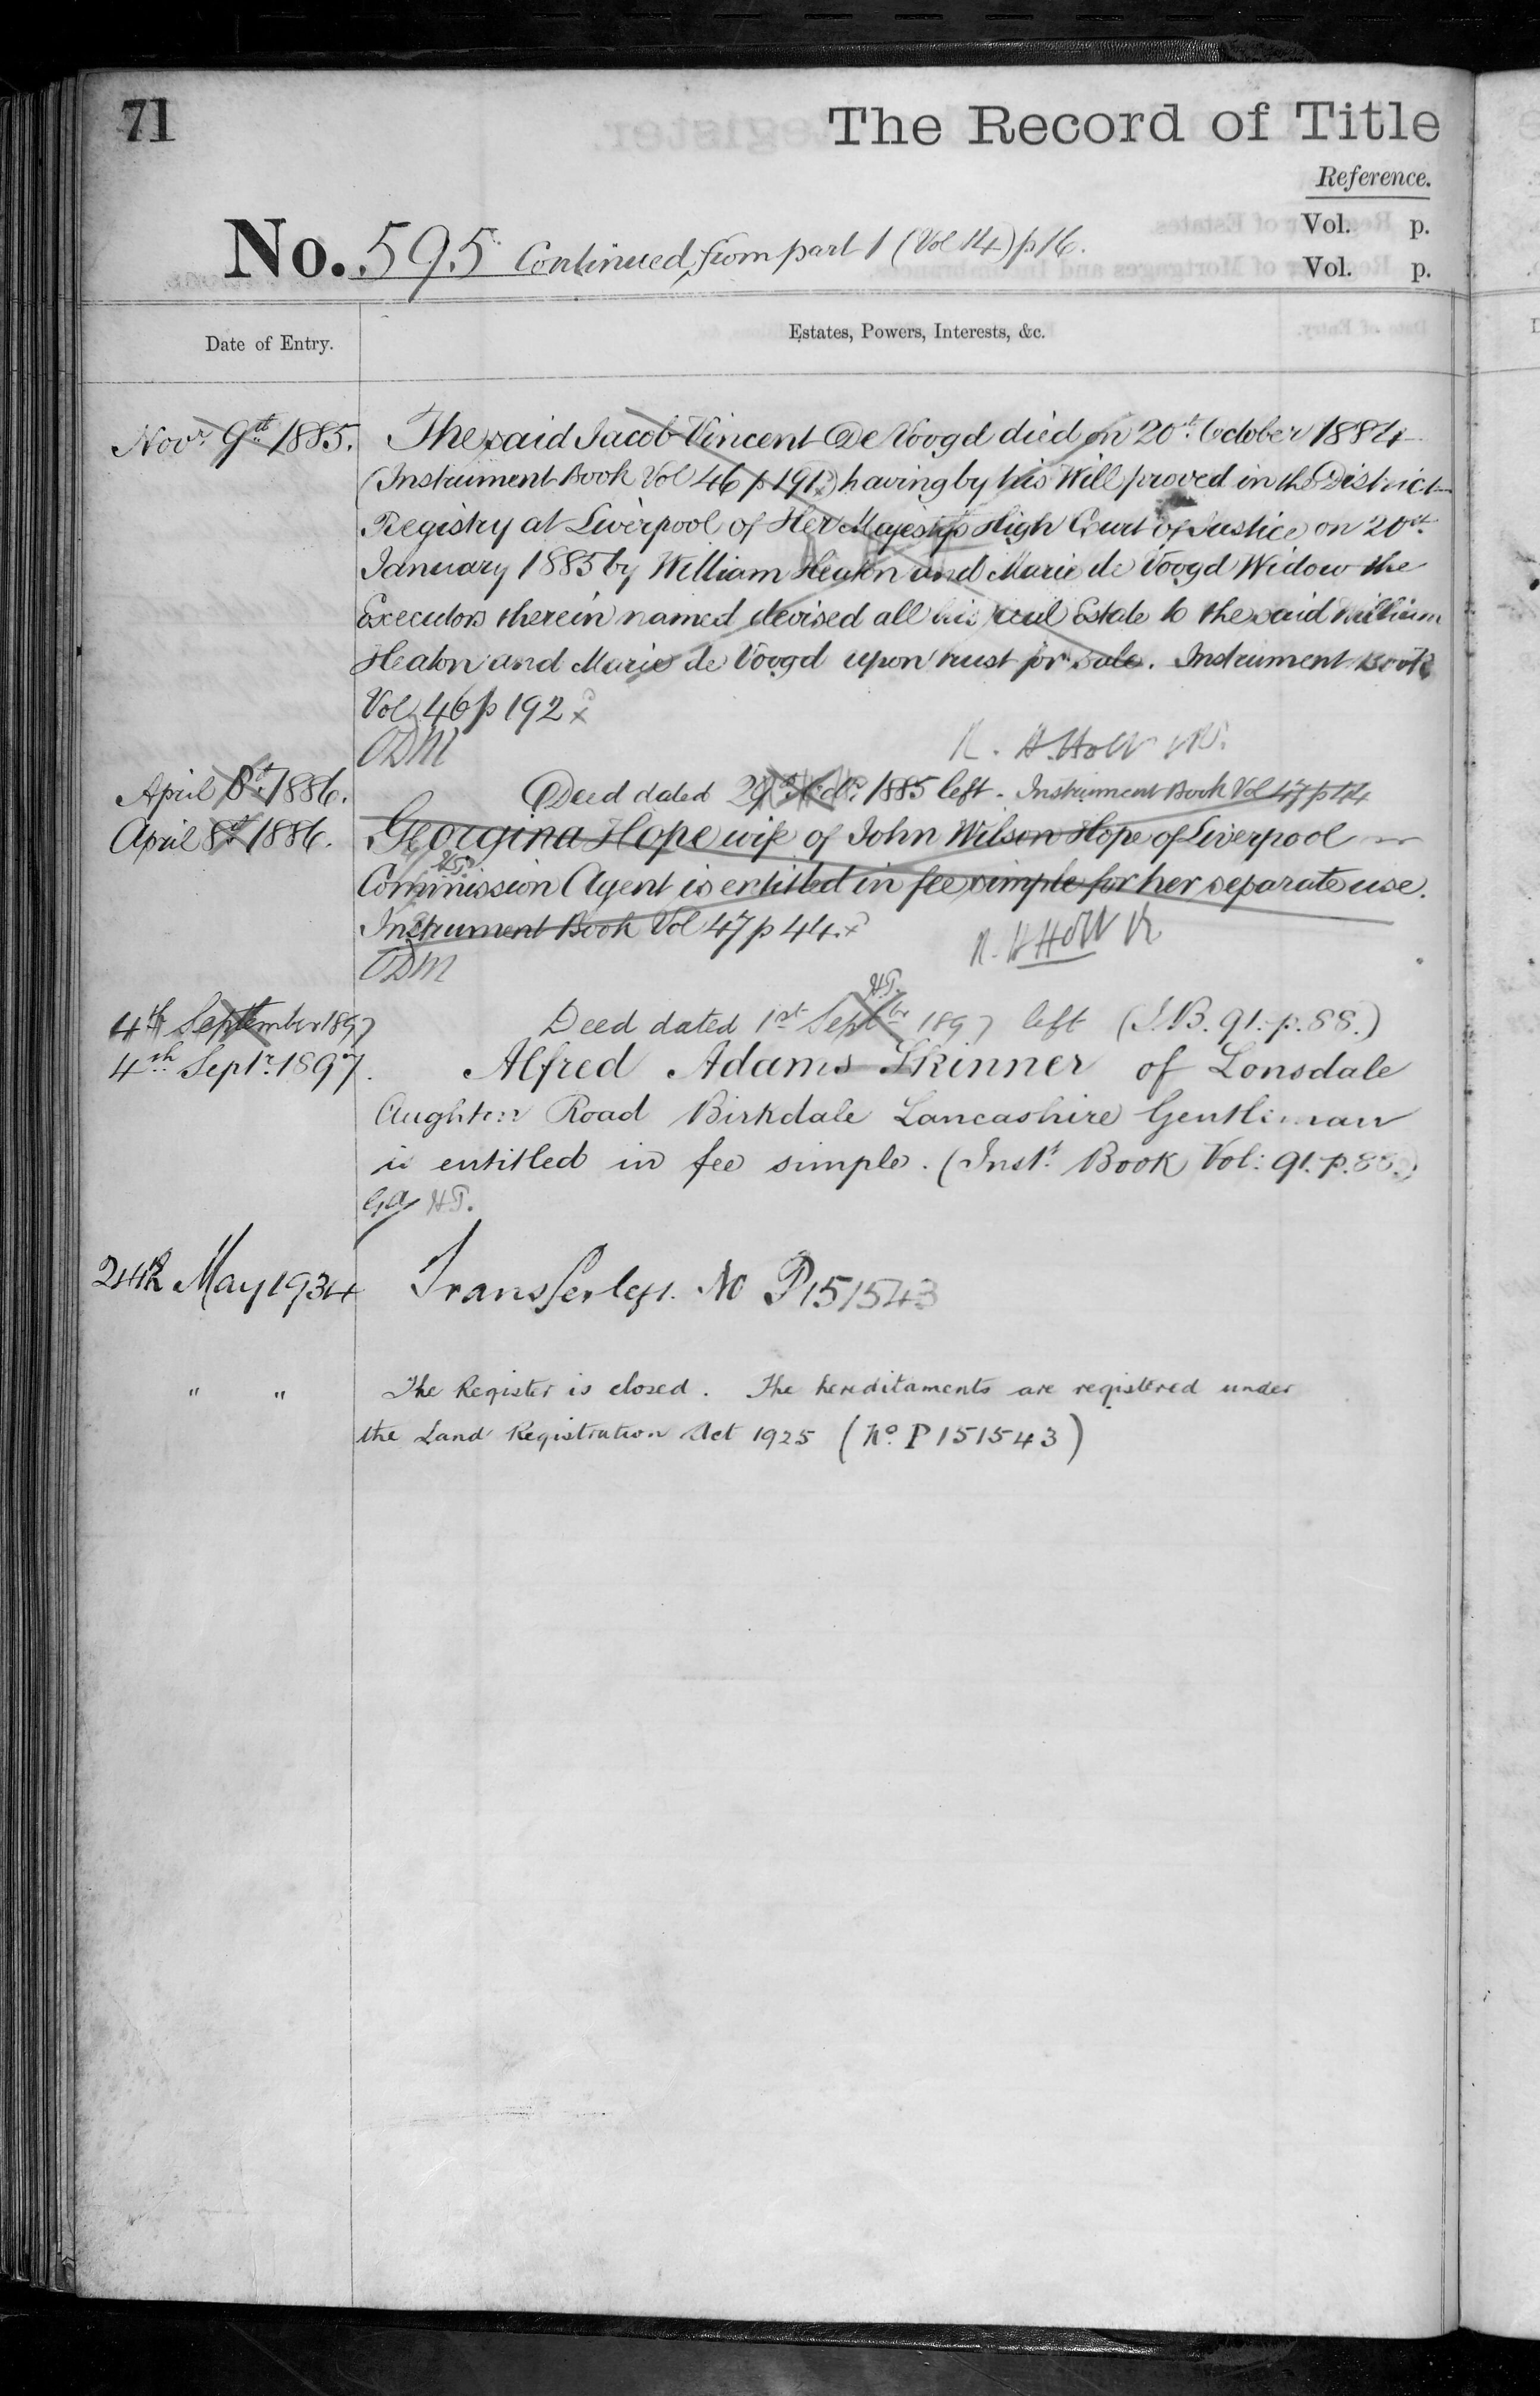 71
The Record of Title
Reference.
Vol. p.
No. 595 Continued from part 1 (Vol 14) p 16.
Vol. p.
Date of Entry.
Estates, Powers, Interests, &c.
Novr. 9th 1885. The said Jacob Vincent De Voogd died on 20th October 1884
(Instrument Book Vol 46 p 191) having by his Will proved in the District
Registry at Liverpool of Her Majesty's High Court of Justice on 20th
January 1885 by William Heaton and Marie de Voogd Widow the
Executors therein named devised all his real Estate to the said William
Heaton and Marie de Voogd upon trust for sale. Instrument Book
Vol 46 p 192
ODM R. H. Holt
April 8th 1886. Deed dated 1885 left. Instrument Book Vol 47 p 44
April 8th 1886. Georgina Hope wife of John Wilson Hope of Liverpool
Commission Agent is entitled in fee simple for her separate use.
Instrument Book Vol 47 p 44.
ODM R. H Holt
H.T.
4th September 1897 Deed dated 1st Septbr 1897 left (I.B. 91. p. 88.)
4th Septr. 1897. Alfred Adams Skinner of Lonsdale
Aughton Road Birkdale Lancashire Gentleman
is entitled in fee simple. (Inst. Book Vol: 91. p. 88.)
H.T.
24th May 1934 Transfer left. No P151543
" " The Register is closed. The hereditaments are registered under
the Land Registration Act 1925 (No. P151543)